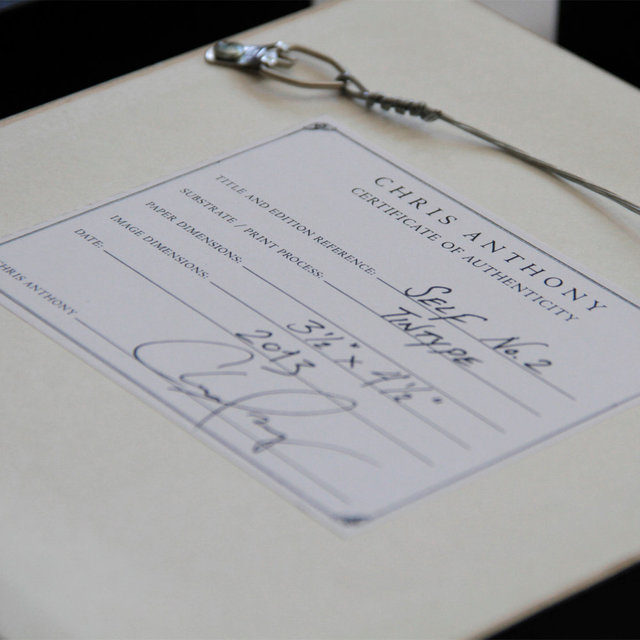 CHRIS ANTHONY
CERTIFICATE OF AUTHENTICITY
TITLE AND EDITION REFERENCE: SELF No. 2
SUBSTRATE / PRINT PROCESS: TINTYPE
PAPER DIMENSIONS:
IMAGE DIMENSIONS: 3½" x 4½"
DATE: 2013
CHRIS ANTHONY